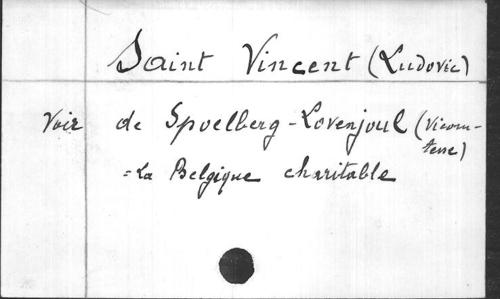 Saint Vincent (Ludovic)
Voir de Spoelberg-Lovenjoul (Vicom-
tesse)
=La Belgique charitable